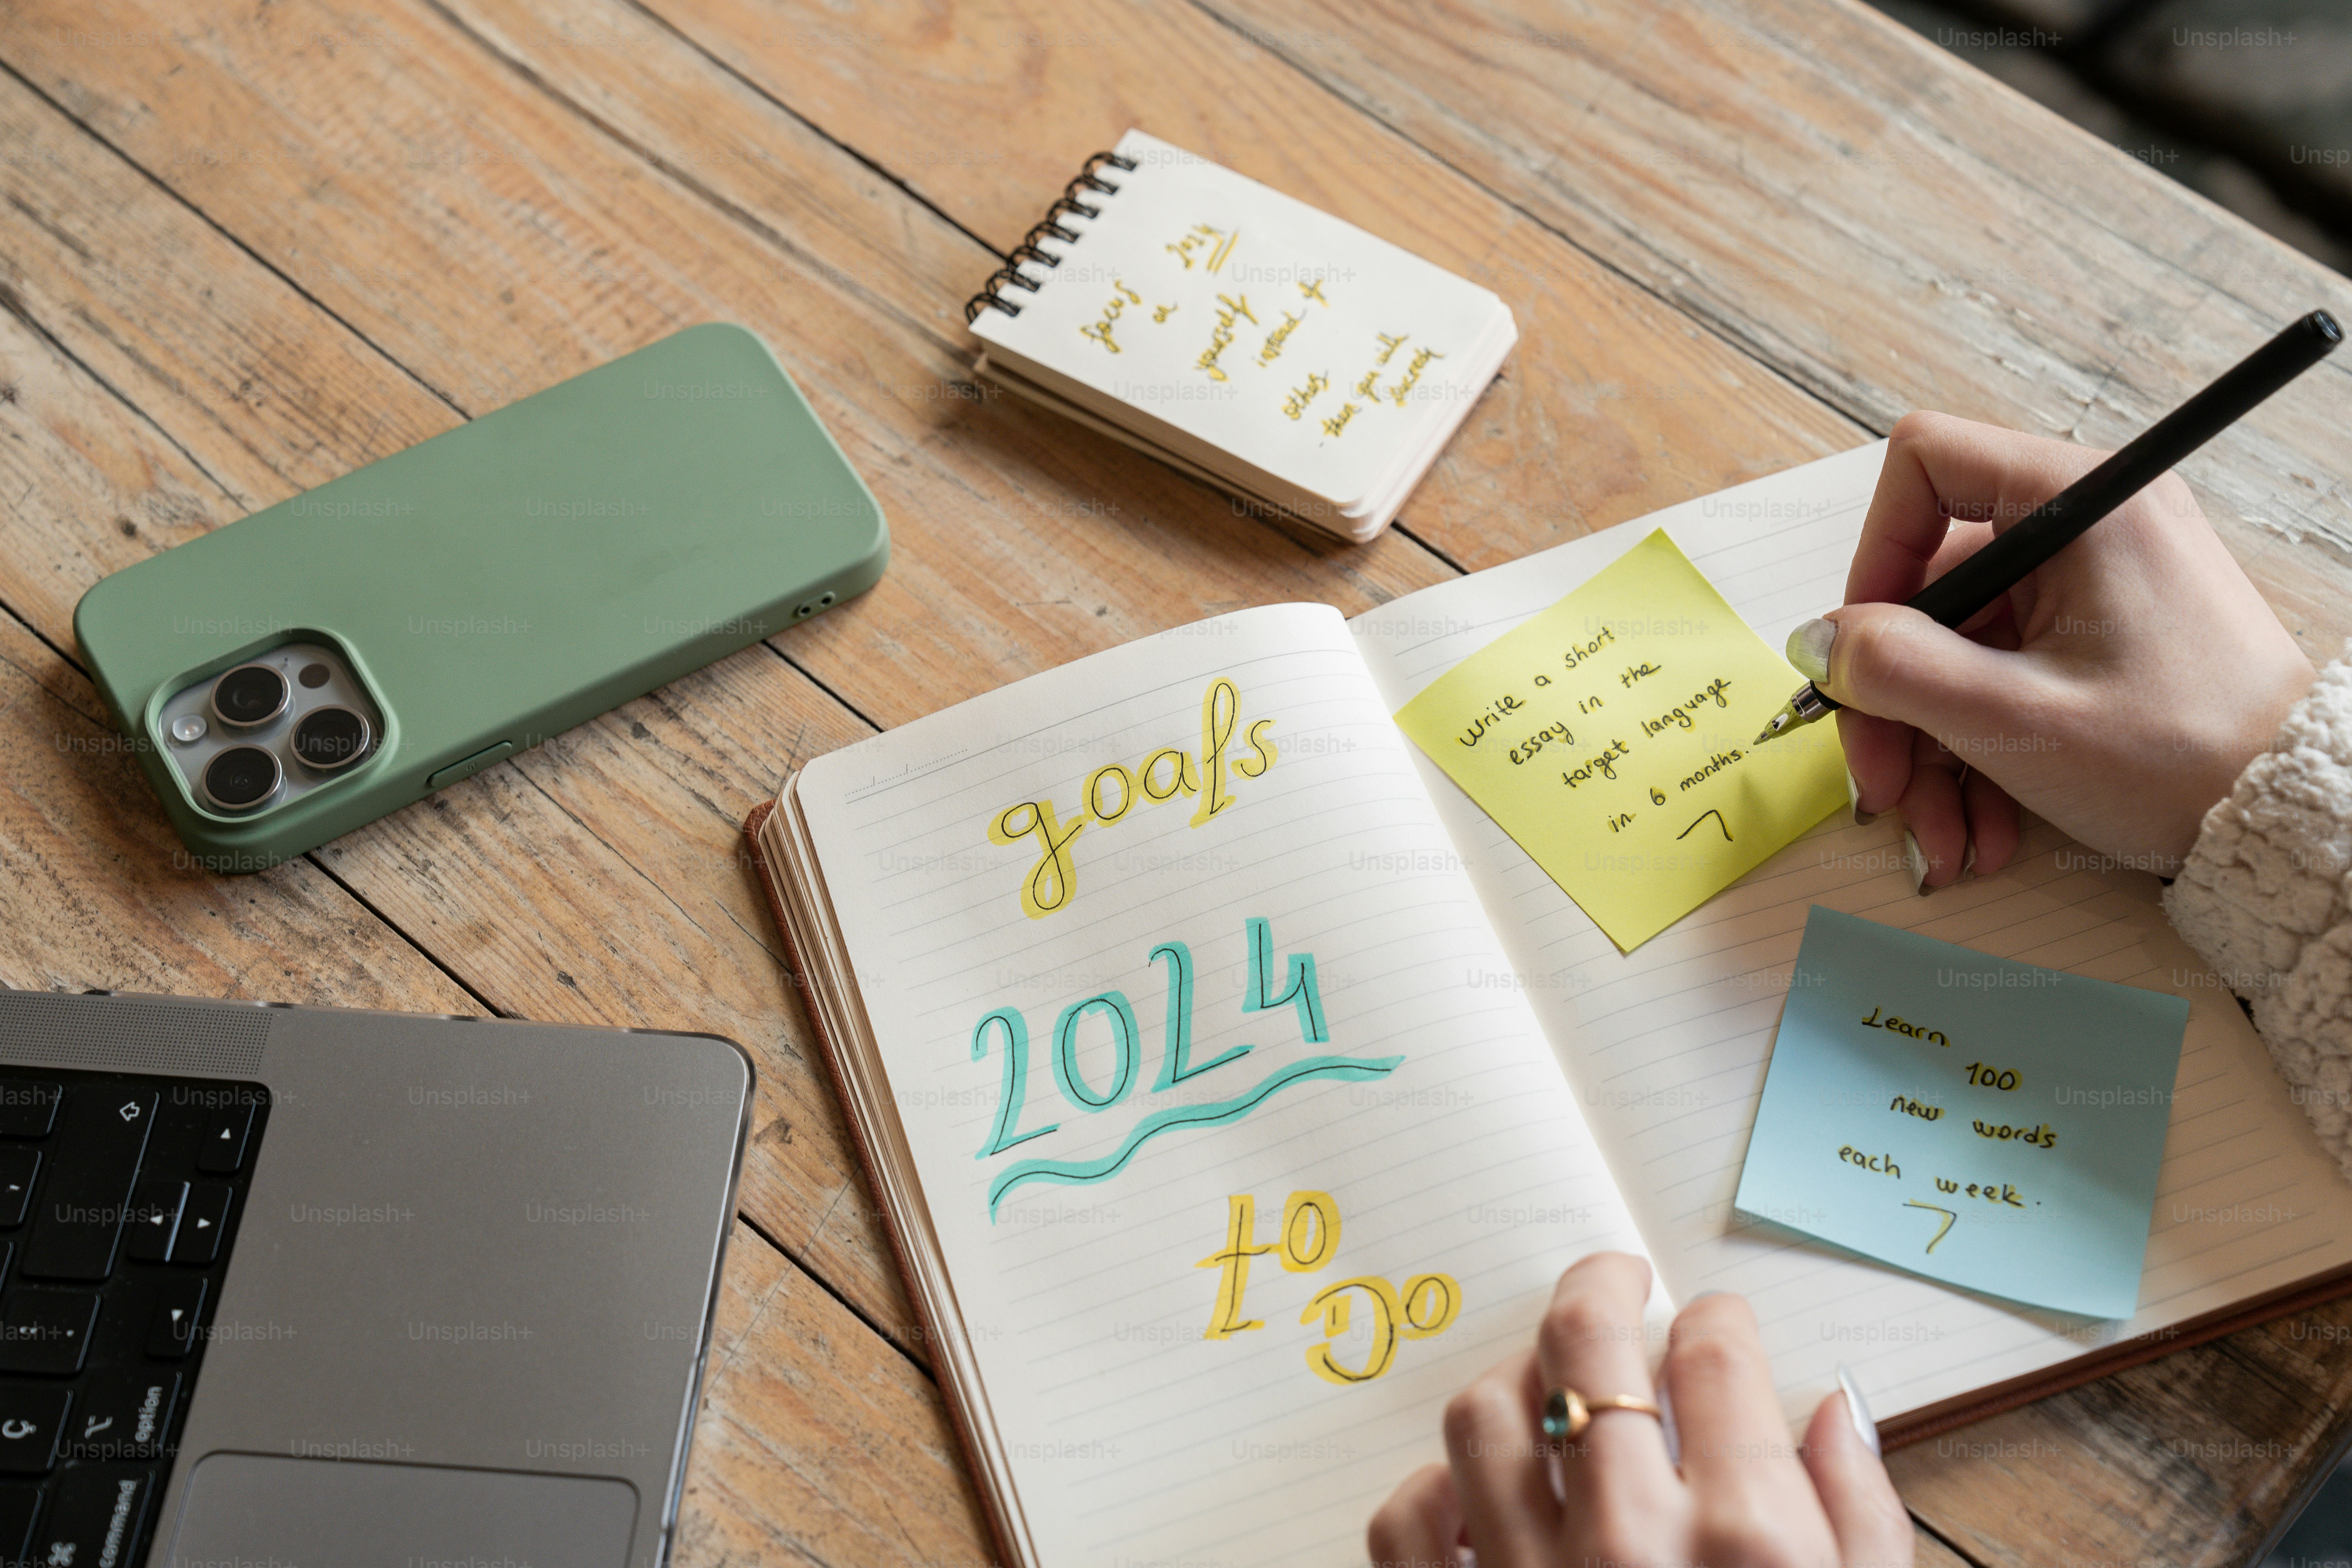 2024
focus
on
yourself
instead of
others
then you will
goals
2024
to
do
write a short
essay in the
target language
in 6 months.
Learn
100
new words
each week.
option
command
Unsplash+